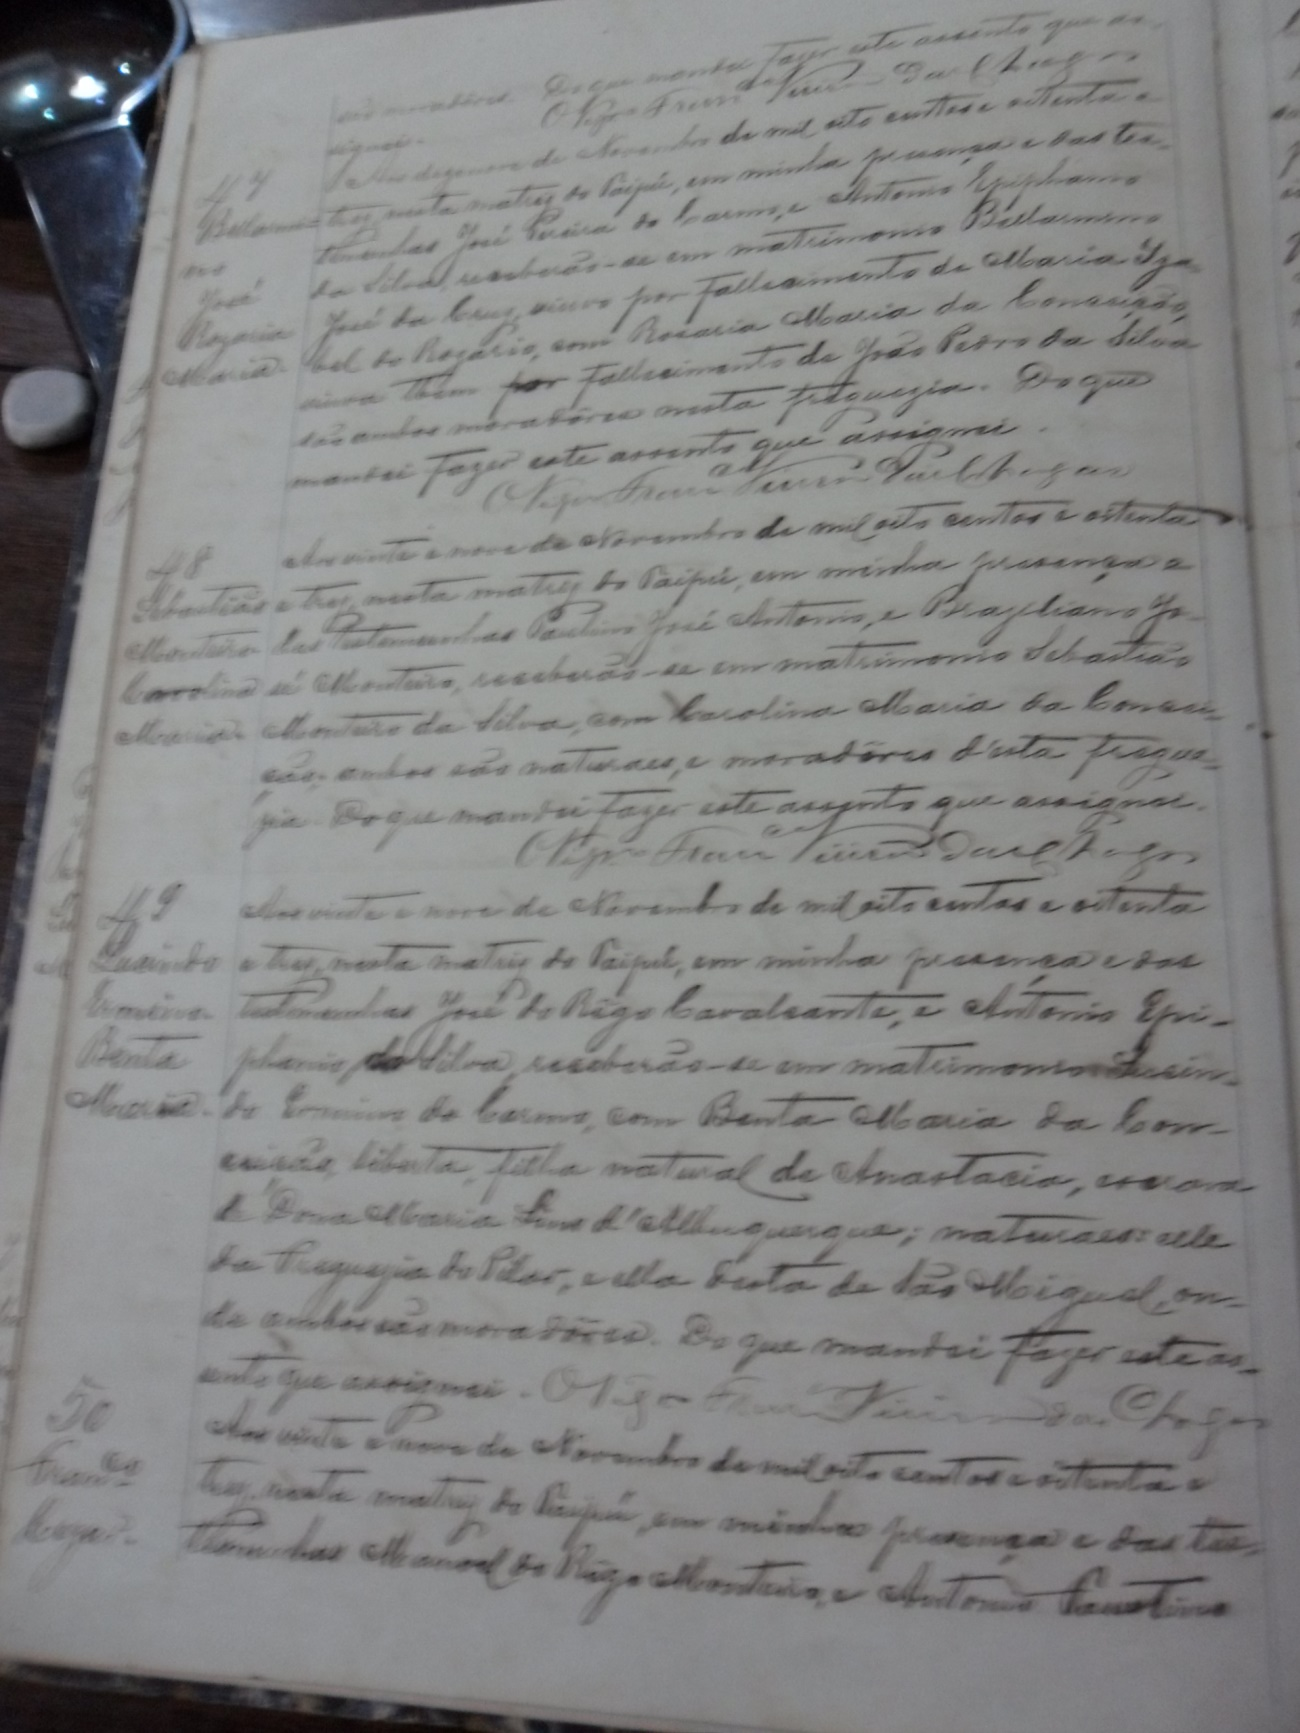 são moradôres. Do que mandei fazer este assento que as-
signei.
O Vigro Franco Vieira Das Chagas
47
Bellarmi-
no
José
Rozaria
Maria.
Aos dezenove de Novembro de mil oito centos e oitenta e
trez, nesta matriz do Taipú, em minha presença e das tes-
temunhas José Pereira do Carmo, e Antonio Epiphanio
da Silva, receberão-se em matrimonio Bellarmino
José da Cruz, viuvo por fallecimento de Maria Iza-
bel do Rozario, com Rosaria Maria da Conceição,
viuva tbem por fallecimento de João Pedro da Silva
são ambos moradôres nesta freguezia. Do que
mandei fazer este assento que assignei.
O Vigro Franco Vieira Das Chagas
48
Sebastião
Monteiro
Carolina
Maria.
Aos vinte e nove de Novembro de mil oito centos e oitenta
e trez, nesta matriz do Taipú, em minha presença e
das testemunhas Paulino José Antonio, e Braziliano Jo-
sé Monteiro, receberão-se em matrimonio Sebastião
Monteiro da Silva, com Carolina Maria da Concei-
ção; ambos são naturaes, e moradôres d'esta fregue-
zia. Do que mandei fazer este assento que assignei.
O Vigro Franco Vieira Das Chagas
49
Lucindo
Ermino.
Benta
Maria.
Aos vinte e nove de Novembro de mil oito centos e oitenta
e trez, nesta matriz do Taipú, em minha presença e das
testemunhas José do Rêgo Cavalcante, e Antonio Epi-
phanio da Silva, receberão-se em matrimonio Lucin-
do Ermino do Carmo, com Benta Maria da Con-
ceição, liberta, filha natural de Anastacia, escrava
de Dona Maria Lins d'Albuquerque; naturaes: elle
da Freguezia do Pilar, e ella desta de São Miguel, on-
de ambos são moradôres. Do que mandei fazer este as-
sento que assignei. O Vigro Franco Vieira das Chagas
50
Franco
Aos vinte e nove de Novembro de mil oito centos e oitenta e
trez, nesta matriz do Taipú, em minha presença e das tes-
temunhas Manoel do Rêgo Monteiro, e Antonio Faustino